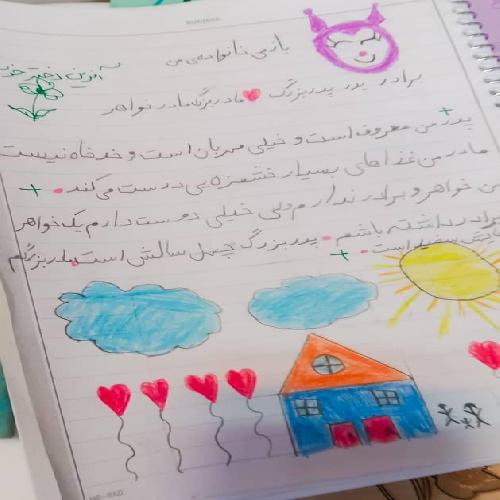 بازی خانواده‌ی من
آفرین دختر خوب
برادر پدر پدربزرگ مادربزرگ مادر خواهر
پدر من معروف است و خیلی مهربان است و خدخاه نیست
مادر من غذاهای بسیار خشمزه‌یی درست می‌کند
من خواهر و برادر ندارم ولی خیلی دوست دارم یک خواهر
برادر داشته باشم پدربزرگ چهل سالش است مادربزرگم
است